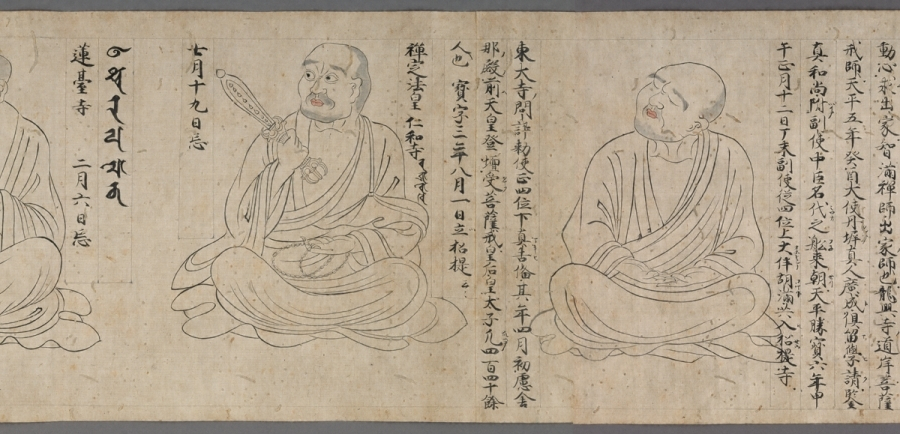 動心求出家智滿禪師出家師也龍興寺道岸菩薩
戒師天平五年癸酉大使丹墀真人廣成復留學請鑒
真和尚附副使中臣名代之舩來朝天平勝寶六年甲
午正月十二日丁未副使從四位上大伴胡滿共入招提寺
東大寺開講勅使正四位下真吉備其年四月初盧舍
那殿前天皇登壇受菩薩戒皇后皇太子凡四百四十餘
人也 寶字三年八月一日立招提
禪定法皇 仁和寺
七月十九日忌
蓮臺寺 二月六日忌